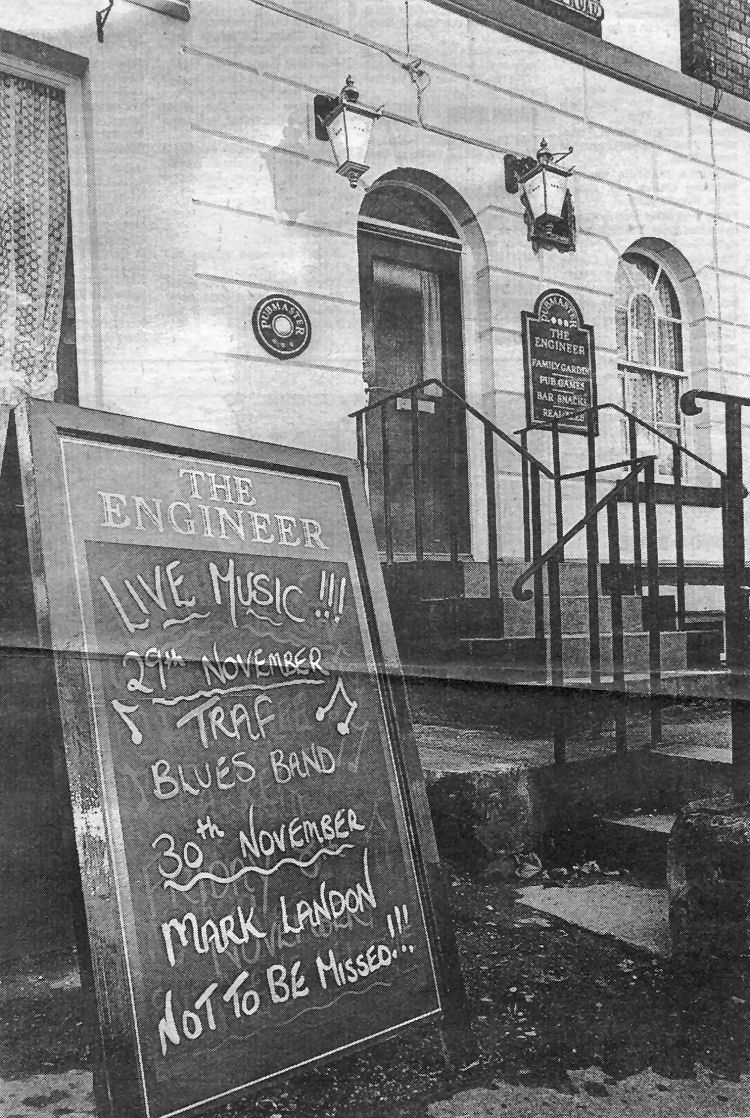 ROAD
PUBMASTER
PUBMASTER
THE
ENGINEER
FAMILY GARDEN
PUB GAMES
BAR SNACKS
REAL ALES
THE
ENGINEER
LIVE MUSIC!!!
29th NOVEMBER
TRAF
BLUES BAND
30th NOVEMBER
MARK LANDON
NOT TO BE MISSED!!!